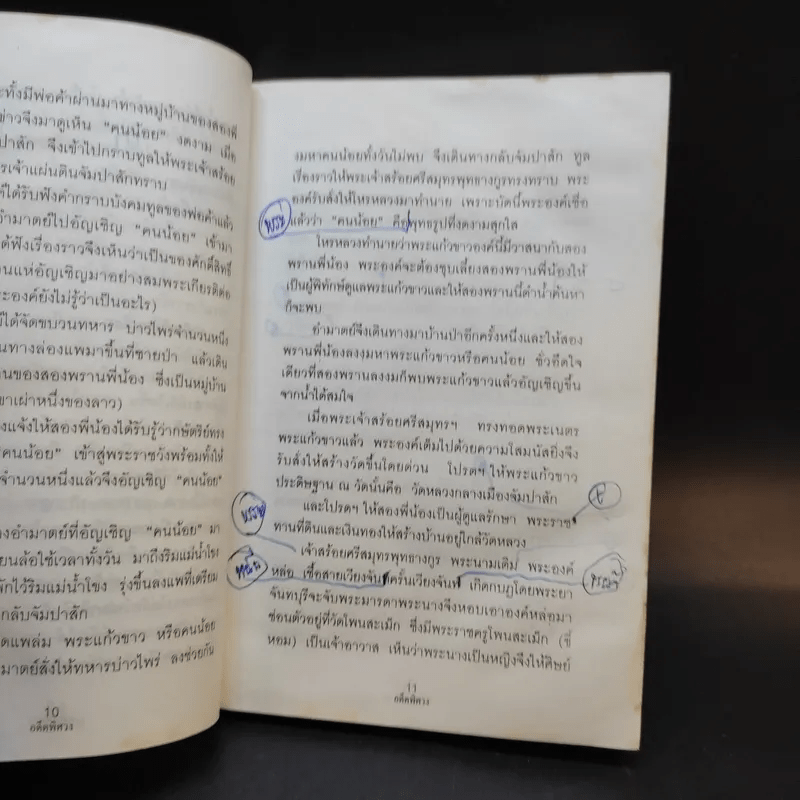 ะทั้งมีพ่อค้าผ่านมาทางหมู่บ้านของสองพี่
ข่าวจึงมาดูเห็น “คนน้อย” งดงาม เมื่อ
ปาสัก จึงเข้าไปกราบทูลให้พระเจ้าสร้อย
รเจ้าแผ่นดินจัมปาสักทราบ
ค์ได้รับฟังคำกราบบังคมทูลของพ่อค้าแล้ว
อำมาตย์ไปอัญเชิญ “คนน้อย” เข้ามา
ได้ฟังเรื่องราวจึงเห็นว่าเป็นของศักดิ์สิทธิ์
วนแห่อัญเชิญมาอย่างสมพระเกียรติต่อ
ะองค์ยังไม่รู้ว่าเป็นอะไร)
ย์ได้จัดขบวนทหาร บ่าวไพร่จำนวนหนึ่ง
นทางล่องแพมาขึ้นที่ชายป่า แล้วเดิน
นของสองพรานพี่น้อง ซึ่งเป็นหมู่บ้าน
ขาเผ่าหนึ่งของลาว)
งแจ้งให้สองพี่น้องได้รับรู้ว่ากษัตริย์ทรง
คนน้อย” เข้าสู่พระราชวังพร้อมทั้งให้
จำนวนหนึ่งแล้วจึงอัญเชิญ “คนน้อย”
งอำมาตย์ที่อัญเชิญ “คนน้อย” มา
ยนล้อใช้เวลาทั้งวัน มาถึงริมแม่น้ำโขง
พักไว้ริมแม่น้ำโขง รุ่งขึ้นลงแพที่เตรียม
กลับจัมปาสัก
ดแพล่ม พระแก้วขาว หรือคนน้อย
มาตย์สั่งให้ทหารบ่าวไพร่ ลงช่วยกัน
10
อดีตพิศวง
งมหาคนน้อยทั้งวันไม่พบ จึงเดินทางกลับจัมปาสัก ทูล
เรื่องราวให้พระเจ้าสร้อยศรีสมุทรพุทธางกูรทรงทราบ พระ
องค์รับสั่งให้โหรหลวงมาทำนาย เพราะบัดนี้พระองค์เชื่อ
แล้วว่า “คนน้อย” คือพุทธรูปที่งดงามสุกใส
โหรหลวงทำนายว่าพระแก้วขาวองค์นี้มีวาสนากับสอง
พรานพี่น้อง พระองค์จะต้องชุบเลี้ยงสองพรานพี่น้องให้
เป็นผู้พิทักษ์ดูแลพระแก้วขาวและให้สองพรานนี้ดำน้ำค้นหา
ก็จะพบ
อำมาตย์จึงเดินทางมาบ้านป่าอีกครั้งหนึ่งและให้สอง
พรานพี่น้องลงงมหาพระแก้วขาวหรือคนน้อย ชั่วอึดใจ
เดียวที่สองพรานลงงมก็พบพระแก้วขาวแล้วอัญเชิญขึ้น
จากน้ำได้สมใจ
เมื่อพระเจ้าสร้อยศรีสมุทรฯ ทรงทอดพระเนตร
พระแก้วขาวแล้ว พระองค์เต็มไปด้วยความโสมนัสยิ่งจึง
รับสั่งให้สร้างวัดขึ้นโดยด่วน โปรดฯ ให้พระแก้วขาว
ประดิษฐาน ณ วัดนั้นคือ วัดหลวงกลางเมืองจัมปาสัก
และโปรดฯ ให้สองพี่น้องเป็นผู้ดูแลรักษา พระราช
ทานที่ดินและเงินทองให้สร้างบ้านอยู่ใกล้วัดหลวง
เจ้าสร้อยศรีสมุทรพุทธางกูร พระนามเดิม พระองค์
หล่อ เชื้อสายเวียงจันท์ครั้นเวียงจันท์ เกิดกบฏโดยพระยา
จันทบุรีจะจับพระมารดาพระนางจึงหอบเอาองค์หล่อมา
ซ่อนตัวอยู่ที่วัดโพนสะเม็ก ซึ่งมีพระราชครูโพนสะเม็ก (ขี้
หอม) เป็นเจ้าอาวาส เห็นว่าพระนางเป็นหญิงจึงให้ศิษย์
11
อดีตพิศวง